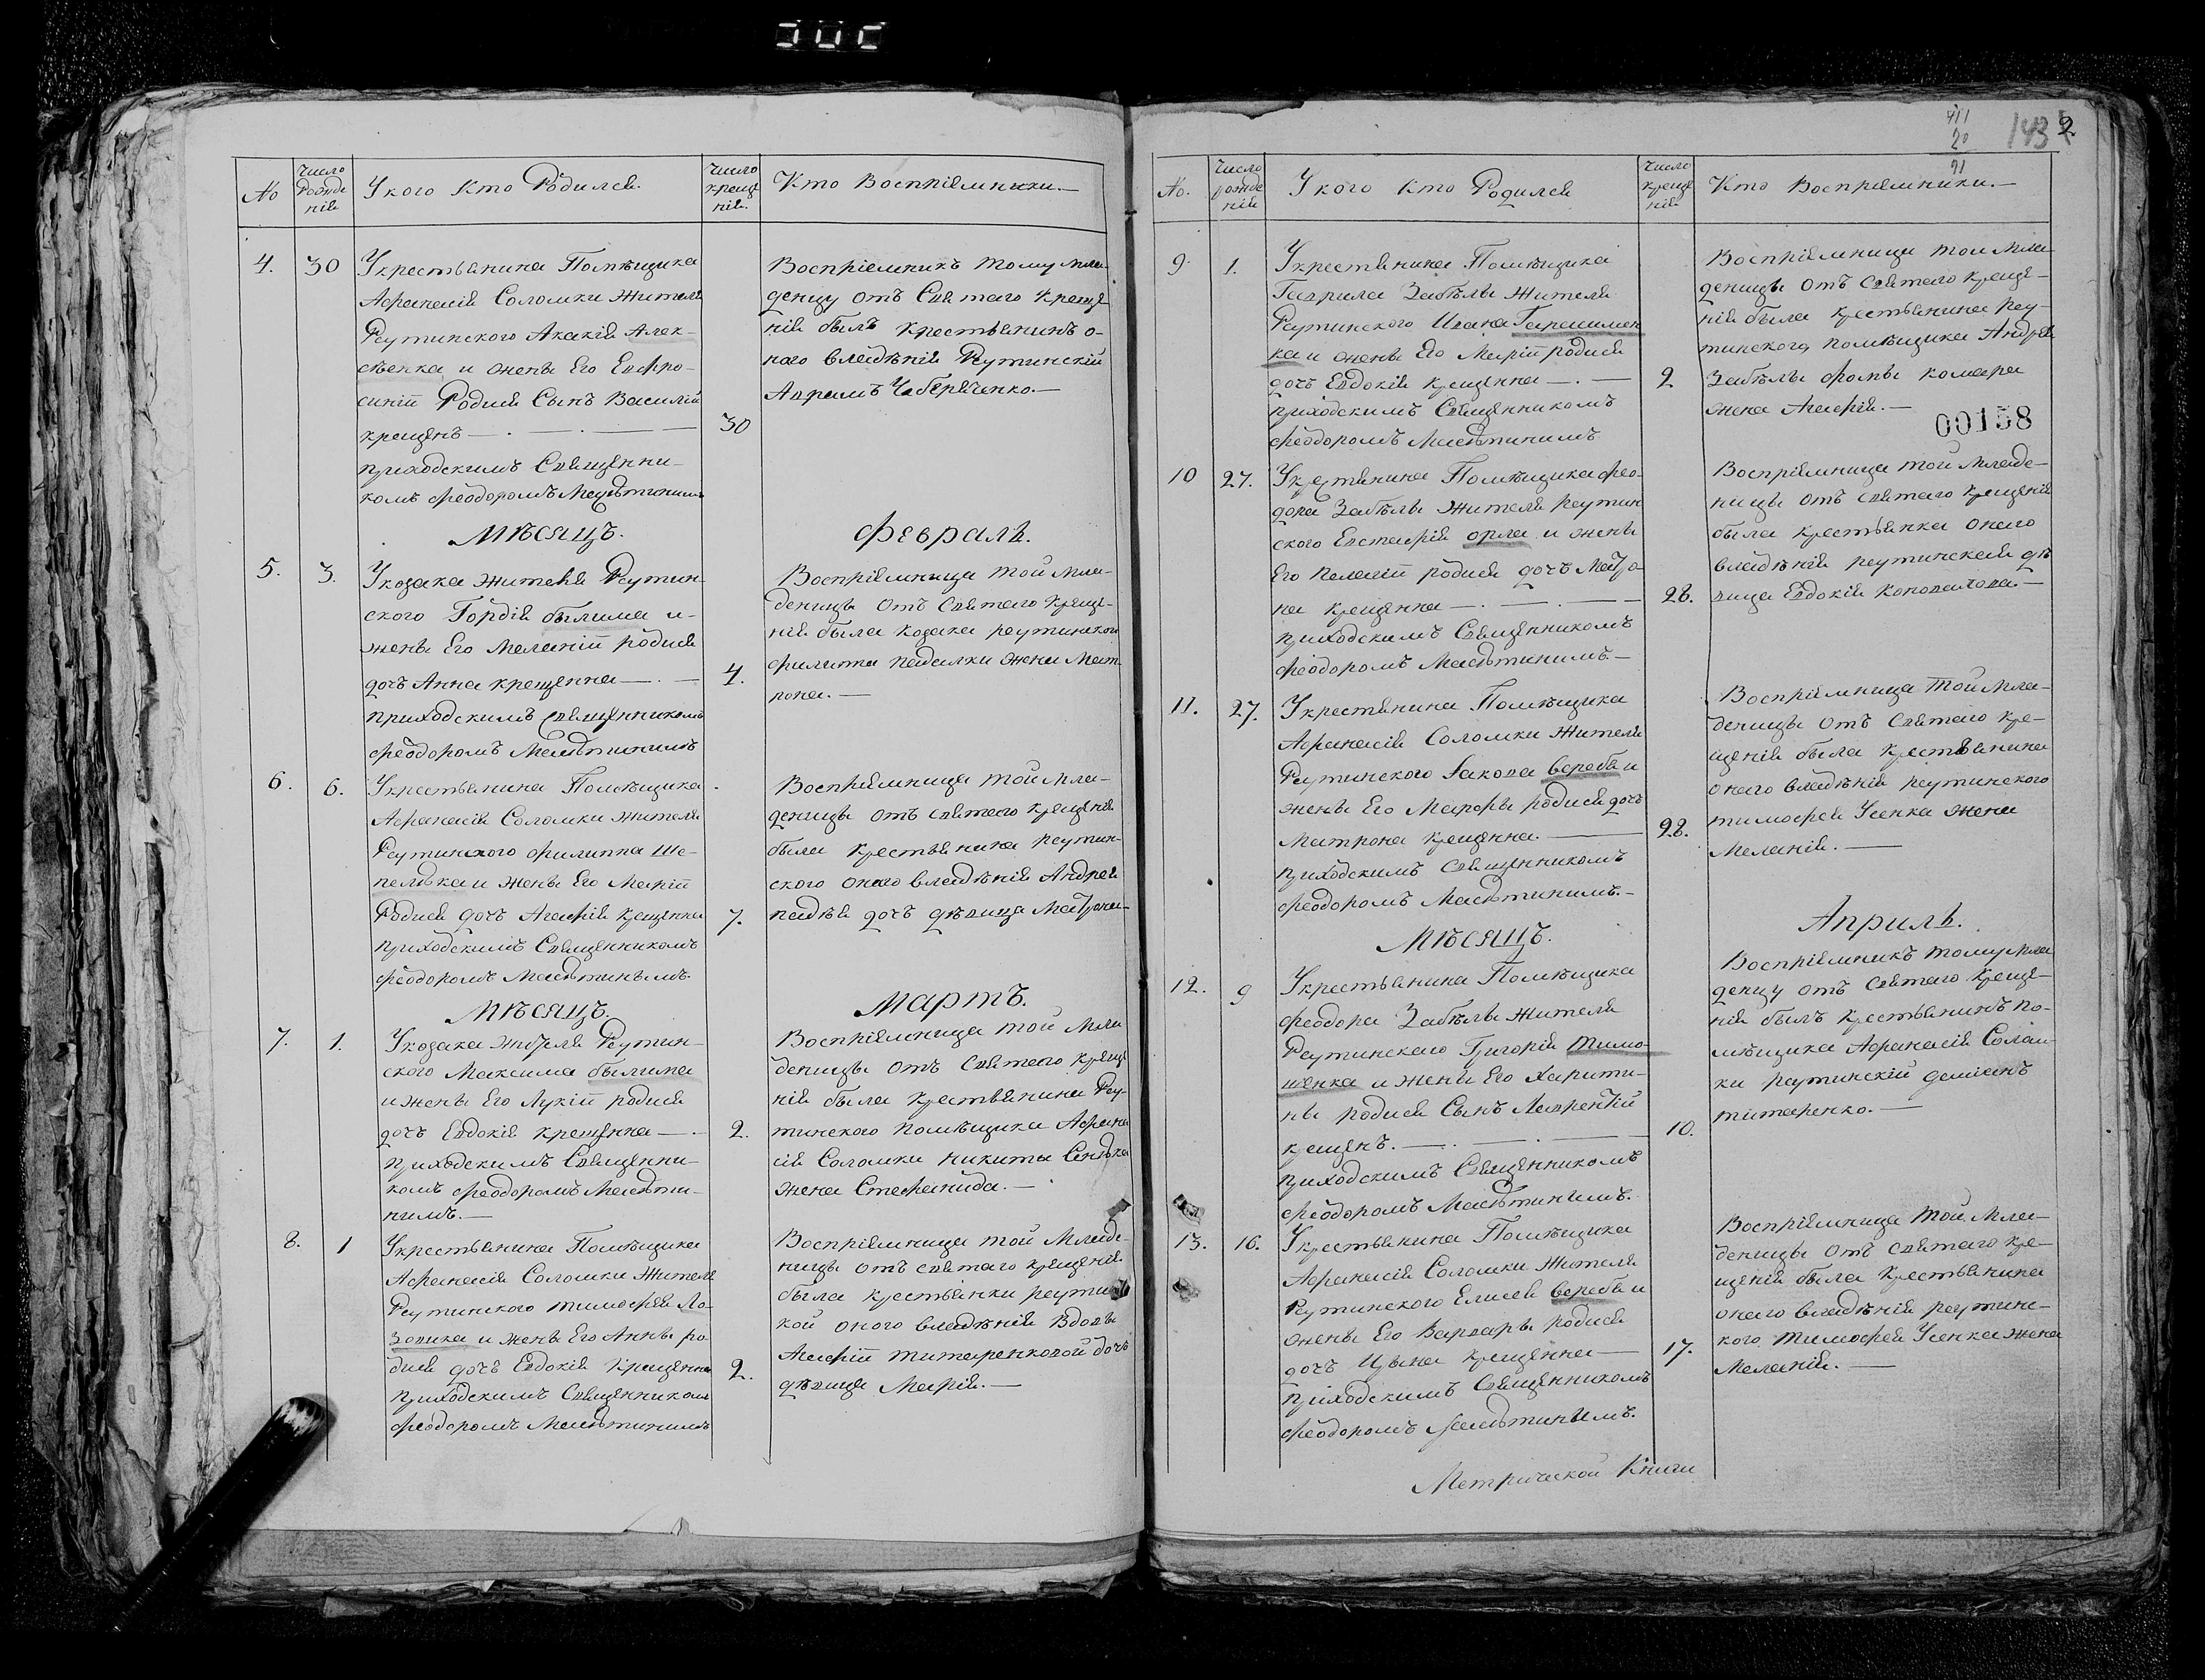 №
Число Рожденія
У кого Кто Родился.
Число крещенія.
Кто Воспріемники.—
4.
30
У крестьянина Помѣщика
Афанасія Соломки жителя
Реутинского Акакія Алек-
сѣенка и жены Его Евфро-
синіи Родися Сынъ Василій
крещенъ —.—.—
приходскимъ Священни-
комъ Феодоромъ
30
Воспріемникъ тому мла-
денцу отъ Святаго креще
нія былъ крестьянинъ о-
наго владѣнія Реутинскій
Аврамъ
Мѣсяцъ.
Февраль.
5.
3.
У козака жителя Реутин-
ского Гордія былима и
жены Его Меланіи родися
дочь Анна крещенна —.—
приходскимъ Священникомъ
Феодоромъ
4.
Воспріемница той мла-
деницы отъ Святаго креще-
нія была козака реутинского
филипа жена Мат-
рона.—
6.
6.
У крестьянина Помѣщика
Афанасія Соломки жителя
Реутинского филиппа Ше-
пелѣвка и жены Его Маріи
Родися дочь Агафія крещенна
приходскимъ Священникомъ
Феодоромъ
7.
Воспріемница той мла-
деницы отъ святаго крещенія
была крестьянина реутин-
ского оного владѣнія Андрея
дочь дѣвица Матрона—
Мѣсяцъ.
Мартъ.
7.
1.
У козака жителя Реутин-
ского Максима былима
и жены Его Лукіи родися
дочь Евдокія крещенна —.
приходскимъ Священни-
комъ Феодоромъ
2.
Воспріемница той мла
деницы отъ Святаго креще
нія была крестьянина Реу-
тинского помѣщика Афана
сія Соломки никиты
жена Стефанида.—
8.
1
У крестьянина Помѣщика
Афанасія Соломки жителя
Реутинского тимофея Ло-
зовика и жены Его Анны ро-
дися дочь Евдокія крещенна
приходскимъ Священникомъ
Феодоромъ
2.
Воспріемница той младе-
ницы отъ святаго крещенія
была крестьянки реутинс
кой оного владѣнія вдовы
Агафіи титаренковой дочь
дѣвица Марія.—
411
20
21
143
2.
№.
Число рожденія
У кого кто Родился
Число крещенія
Кто Воспріемники.—
9
1.
У крестянина Помѣщика
Гаврила Забѣлы жителя
Реутинского Ивана Гарашимен
ка и жены Его Маріи родися
дочь Евдокія крещенна —.—
приходскимъ Священникомъ
Феодоромъ
2
Воспріемница той мла-
деницы отъ святаго креще-
нія была крестьянина реу-
тинского помѣщика Андрея
Забѣлы фомы комара
жена Агафія.—
00158
10
27.
У крестянина Помѣщика фео-
дора Забѣлы жителя реутин
ского Евстафія орла и жены
Его Пелагіи родися дочь Матро-
на крещенна —.—.—
приходскимъ Священникомъ
Феодоромъ
28.
Воспріемница той младе-
ницы отъ святаго крещенія
была крестьянка онаго
владѣнія реутинская дѣ
вица Евдокія Коновалова—
11.
27.
У крестянина Помѣщика
Афанасія Соломки жителя
Реутинского Іакова вереба и
жены Его Марфы родися дочь
Матрона крещенна.—
приходскимъ Священникомъ
Феодоромъ
28.
Воспріемница той мла-
деницы отъ Святаго кре-
щенія была крестьянина
онаго владѣнія реутинского
тимофея Усенка жена
Меланія.—
Мѣсяцъ.
Апрѣль.
12.
9
У крестьянина Помѣщика
феодора Забѣлы жителя
Реутинскаго Григорія Тимо-
шенка и жены Его Харити-
ны родися Сынъ Лаврентій
крещенъ.—.—.—
приходскимъ Священникомъ
Феодоромъ
10.
Воспріемникъ тому мла
денцу отъ Святаго креще-
нія былъ крестьянинъ по-
мѣщика Афанасія Солом-
ки реутинскій деміанъ
титаренко.—
13.
16.
У крестьянина Помѣщика
Афанасія Соломки жителя
Реутинского Елисея вереба и
жены Его Варвары родися
дочь Ирина крещенна—
приходскимъ Священникомъ
Феодоромъ
17.
Воспріемница той мла-
деницы отъ святаго кре-
щенія была крестьянина
онаго владѣнія реутинс-
кого тимофея Усенка жена
Меланія.—
Метрической Книги